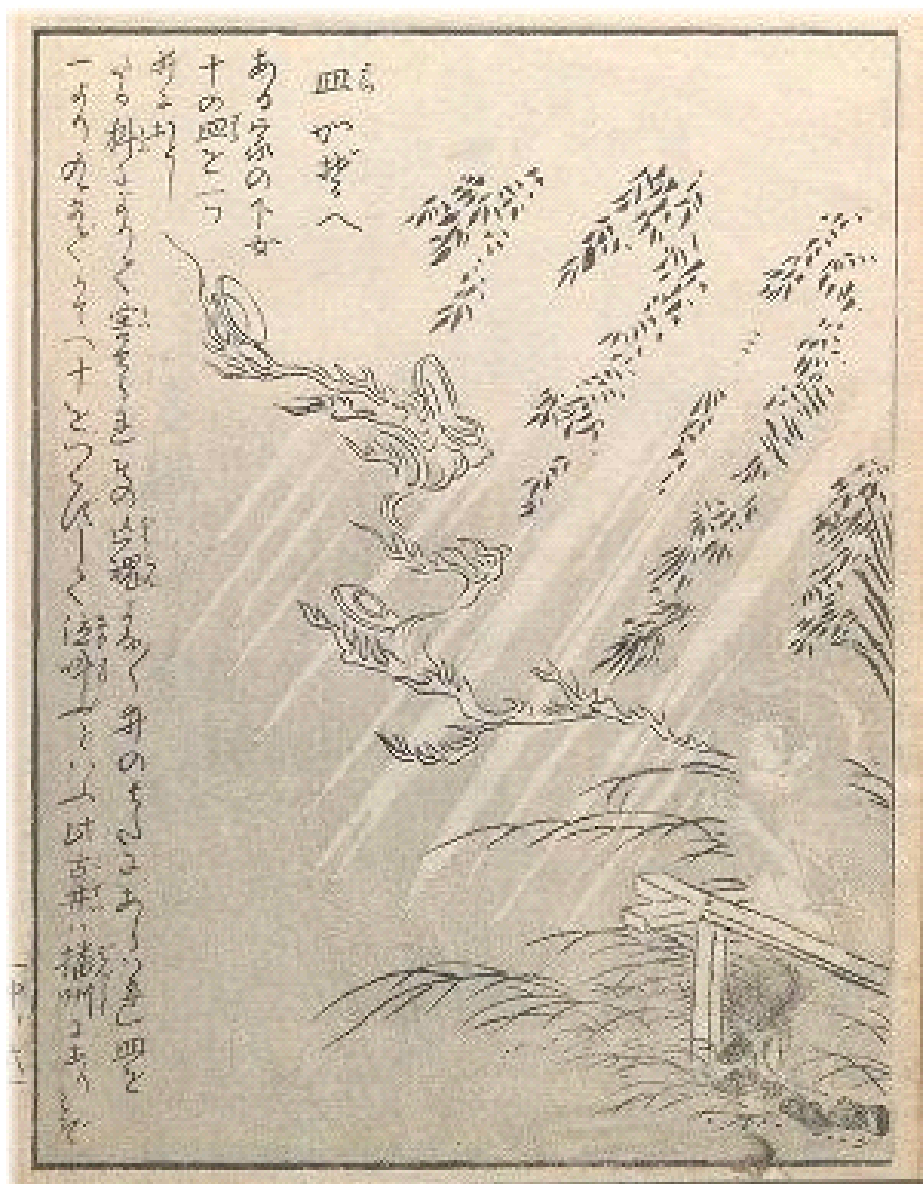 皿かぞへ
ある家の下女
十の皿を一つ
井におとし
たる科によりて害せられ その亡魂よな〳〵井のはたにあらはれ 皿を
一より九までかぞへ 十を 泣叫 といふ 此古井は播州にありとぞ